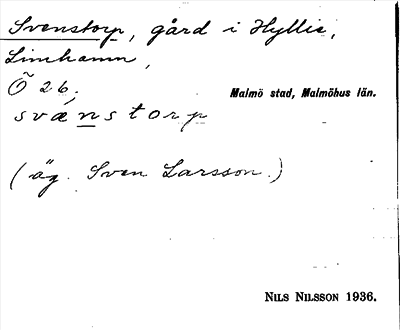 Svenstorp, gård i Hyllie,
Limhamn,
Ö 26.
Malmö stad, Malmöhus län.
svänstorp
(äg. Sven Larsson.)
NILS NILSSON 1936.